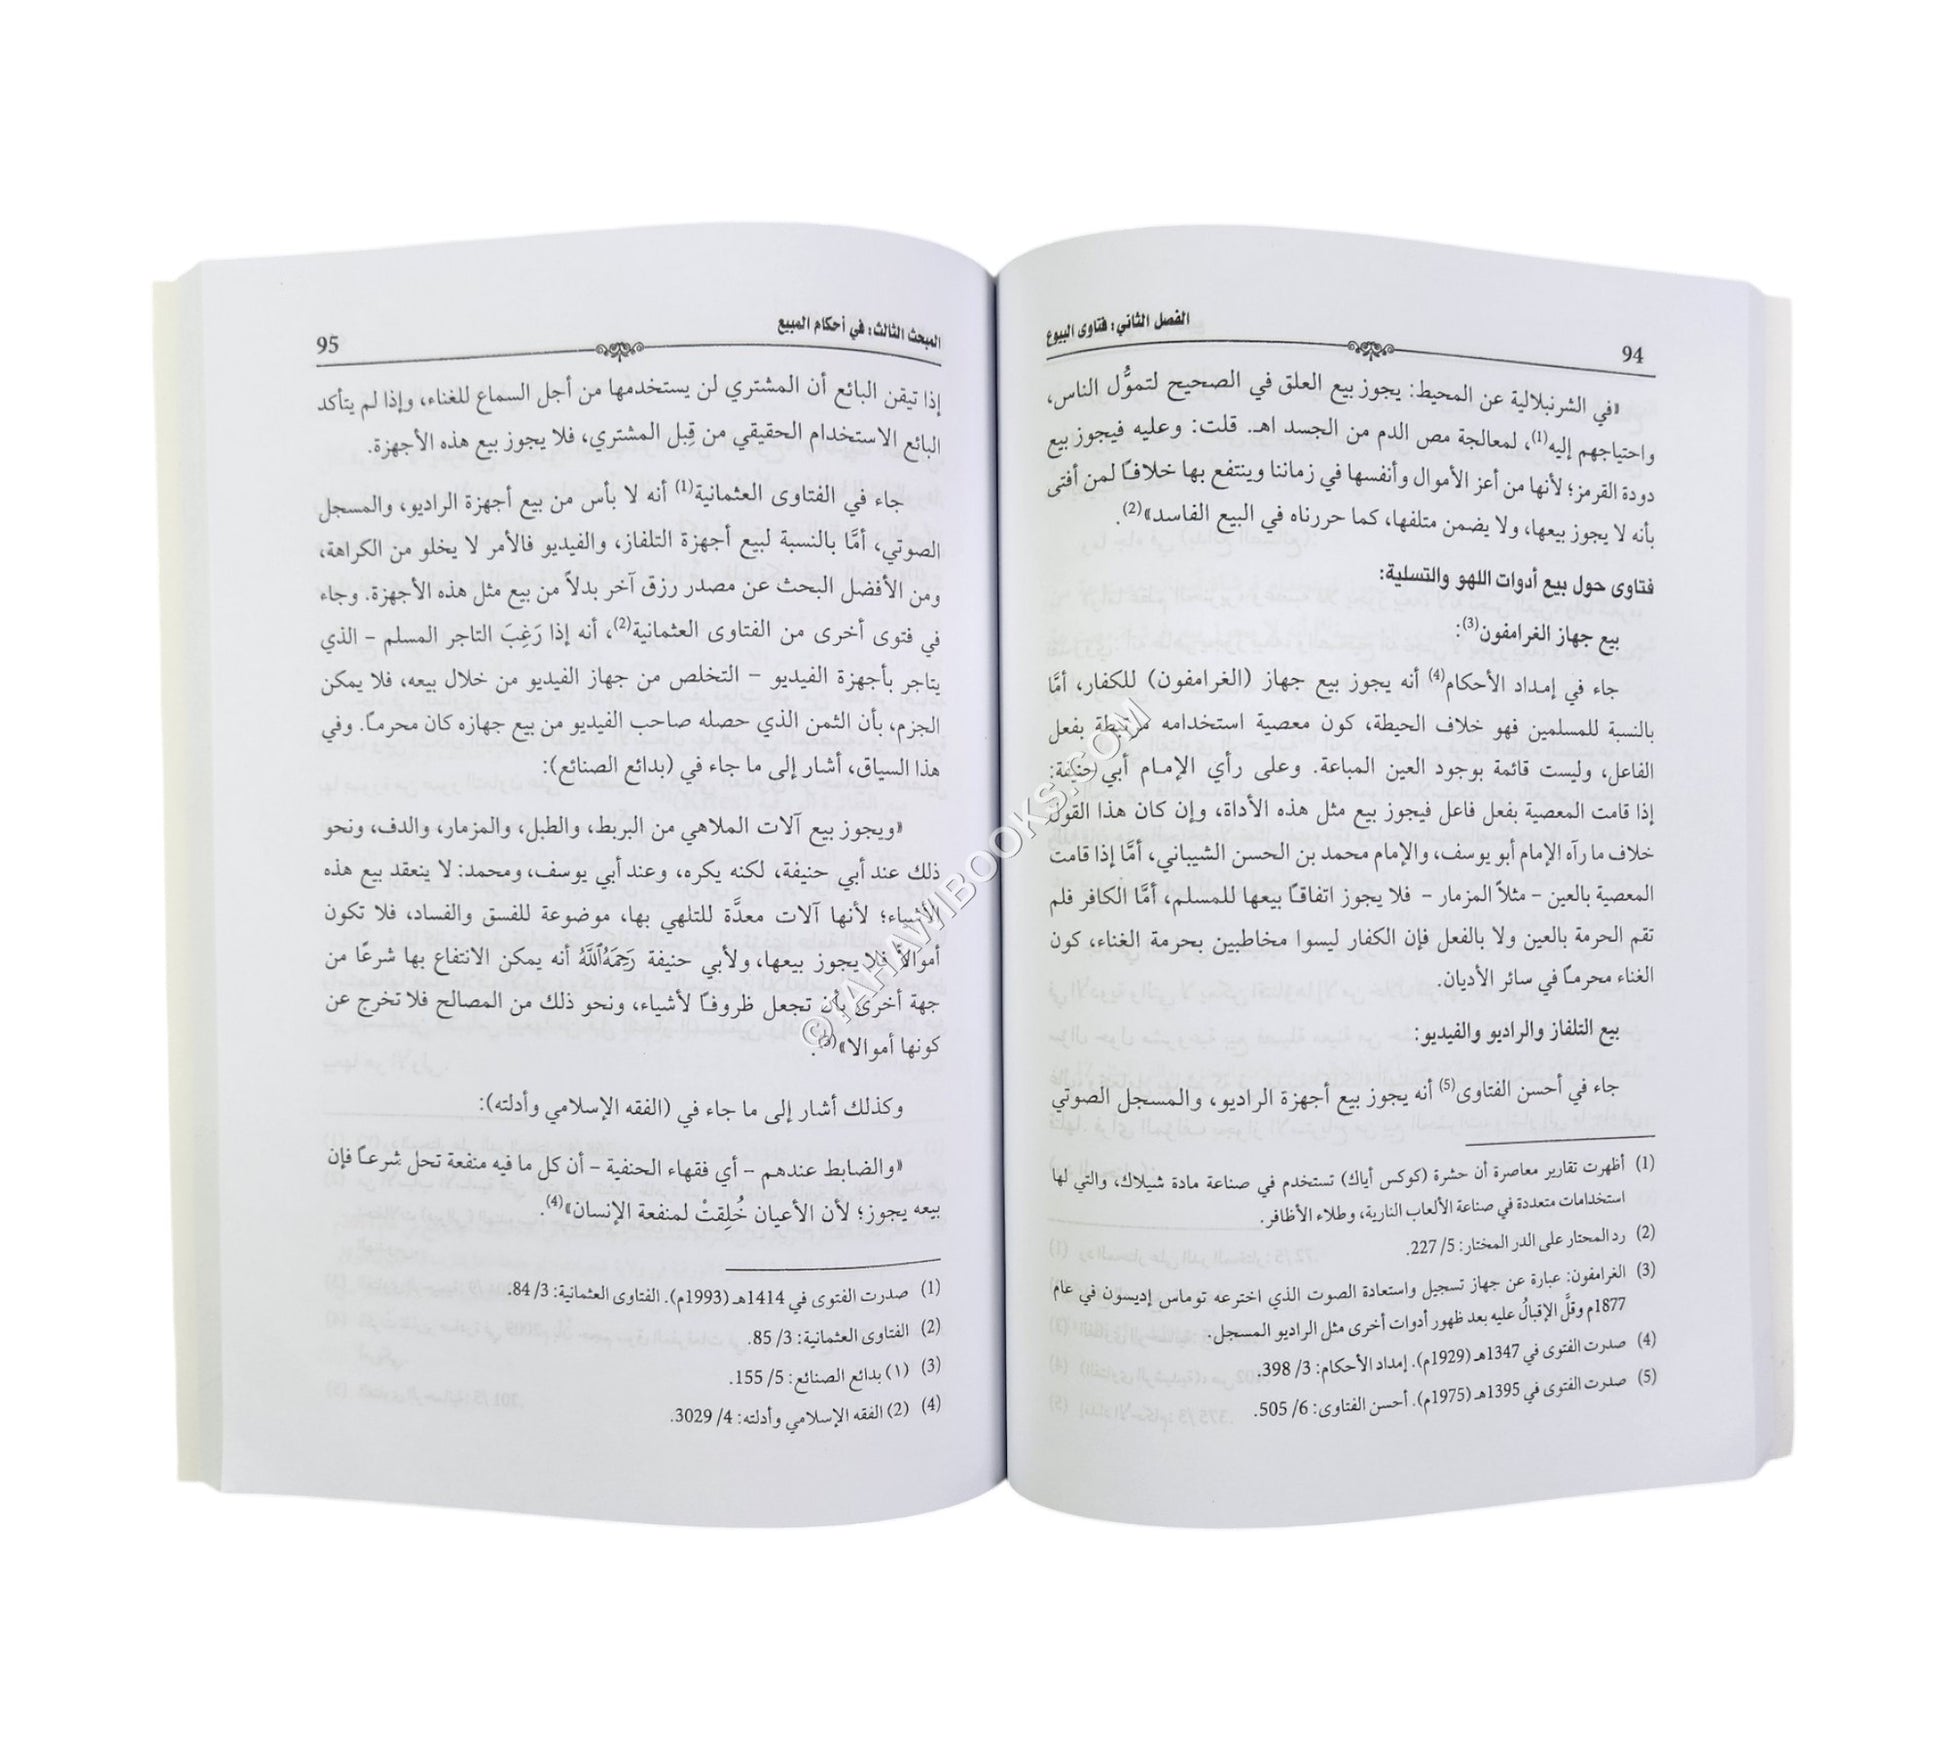 94
الفصل الثاني: فتاوى البيوع
«في الشرنبلالية عن المحيط: يجوز بيع العلق في الصحيح لتموُّل الناس،
واحتياجهم إليه(1)، لمعالجة مص الدم من الجسد اهـ. قلت: وعليه فيجوز بيع
دودة القرمز؛ لأنها من أعز الأموال وأنفسها في زماننا وينتفع بها خلافًا لمن أفتى
بأنه لا يجوز بيعها، ولا يضمن متلفها، كما حررناه في البيع الفاسد»(2).
فتاوى حول بيع أدوات اللهو والتسلية:
بيع جهاز الغرامفون(3):
جاء في إمداد الأحكام(4) أنه يجوز بيع جهاز (الغرامفون) للكفار، أمَّا
بالنسبة للمسلمين فهو خلاف الحيطة، كون معصية استخدامه مرتبطة بفعل
الفاعل، وليست قائمة بوجود العين المباعة. وعلى رأي الإمام أبي حنيفة:
إذا قامت المعصية بفعل فاعل فيجوز بيع مثل هذه الأداة، وإن كان هذا القول
خلاف ما رآه الإمام أبو يوسف، والإمام محمد بن الحسن الشيباني، أمَّا إذا قامت
المعصية بالعين – مثلاً المزمار – فلا يجوز اتفاقًا بيعها للمسلم، أمَّا الكافر فلم
تقم الحرمة بالعين ولا بالفعل فإن الكفار ليسوا مخاطبين بحرمة الغناء، كون
الغناء محرمًا في سائر الأديان.
بيع التلفاز والراديو والفيديو:
جاء في أحسن الفتاوى(5) أنه يجوز بيع أجهزة الراديو، والمسجل الصوتي
(1) أظهرت تقارير معاصرة أن حشرة (كوكس أياك) تستخدم في صناعة مادة شيلاك، والتي لها
استخدامات متعددة في صناعة الألعاب النارية، وطلاء الأظافر.
(2) رد المحتار على الدر المختار: 5/ 227.
(3) الغرامفون: عبارة عن جهاز تسجيل واستعادة الصوت الذي اخترعه توماس إديسون في عام
1877م وقلَّ الإقبالُ عليه بعد ظهور أدوات أخرى مثل الراديو المسجل.
(4) صدرت الفتوى في 1347هـ (1929م). إمداد الأحكام: 3/ 398.
(5) صدرت الفتوى في 1395هـ (1975م). أحسن الفتاوى: 6/ 505.
المبحث الثالث: في أحكام المبيع
95
إذا تيقن البائع أن المشتري لن يستخدمها من أجل السماع للغناء، وإذا لم يتأكد
البائع الاستخدام الحقيقي من قِبل المشتري، فلا يجوز بيع هذه الأجهزة.
جاء في الفتاوى العثمانية(1) أنه لا بأس من بيع أجهزة الراديو، والمسجل
الصوتي، أمَّا بالنسبة لبيع أجهزة التلفاز، والفيديو فالأمر لا يخلو من الكراهة،
ومن الأفضل البحث عن مصدر رزق آخر بدلاً من بيع مثل هذه الأجهزة. وجاء
في فتوى أخرى من الفتاوى العثمانية(2)، أنه إذا رَغِبَ التاجر المسلم – الذي
يتاجر بأجهزة الفيديو – التخلص من جهاز الفيديو من خلال بيعه، فلا يمكن
الجزم، بأن الثمن الذي حصله صاحب الفيديو من بيع جهازه كان محرمًا. وفي
هذا السياق، أشار إلى ما جاء في (بدائع الصنائع):
«ويجوز بيع آلات الملاهي من البربط، والطبل، والمزمار، والدف، ونحو
ذلك عند أبي حنيفة، لكنه يكره، وعند أبي يوسف، ومحمد: لا ينعقد بيع هذه
الأشياء؛ لأنها آلات معدَّة للتلهي بها، موضوعة للفسق والفساد، فلا تكون
أموالاً فلا يجوز بيعها، ولأبي حنيفة رَحِمَهُ ٱللَّهُ أنه يمكن الانتفاع بها شرعًا من
جهة أخرى بأن تجعل ظروفًا لأشياء، ونحو ذلك من المصالح فلا تخرج عن
كونها أموالا»(3).
وكذلك أشار إلى ما جاء في (الفقه الإسلامي وأدلته):
«والضابط عندهم – أي فقهاء الحنفية – أن كل ما فيه منفعة تحل شرعًا فإن
بيعه يجوز؛ لأن الأعيان خُلِقتْ لمنفعة الإنسان»(4).
(1) صدرت الفتوى في 1414هـ (1993م). الفتاوى العثمانية: 3/ 84.
(2) الفتاوى العثمانية: 3/ 85.
(3) (١) بدائع الصنائع: 5/ 155.
(4) (2) الفقه الإسلامي وأدلته: 4/ 3029.